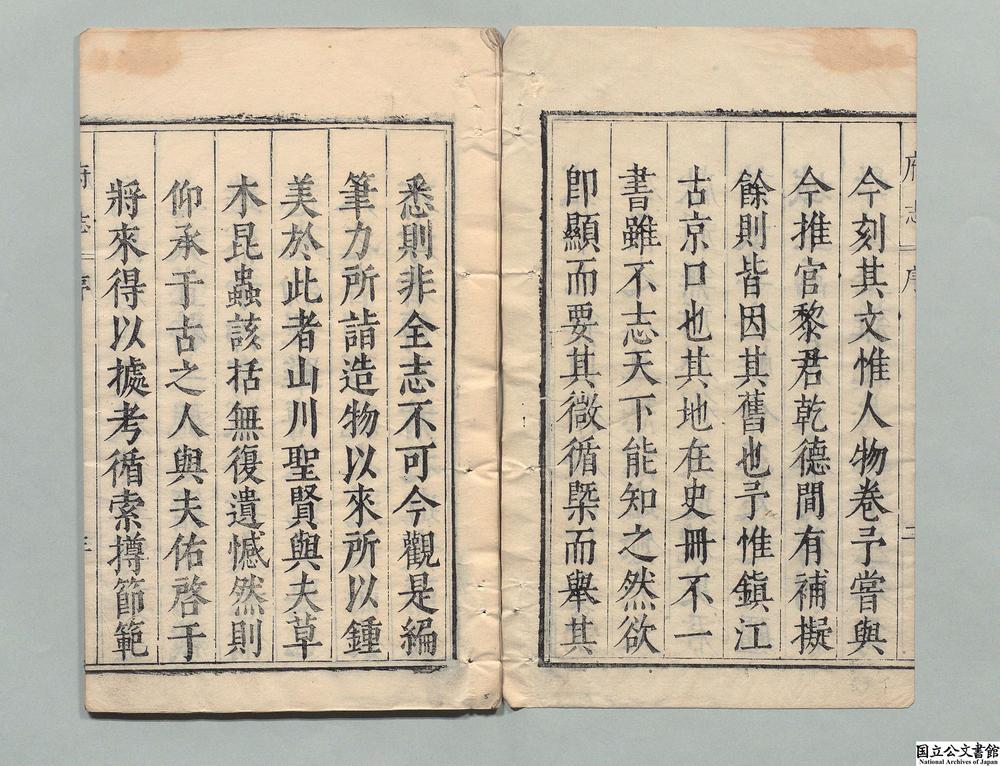 今刻其文惟人物卷予嘗與
今推官黎君乾德間有補擬
餘則皆因其舊也予惟鎮江
古京口也其地在史冊不一
書雖不志天下能知之然欲
即顯而要其微循槩而舉其
悉則非全志不可今觀是編
筆力所詣造物以來所以鍾
美於此者山川聖賢與夫草
木昆蟲該括無復遺憾然則
仰承于古之人與夫佑啓于
將來得以據考循索撙節範
府志
序
二
府志
序
国立公文書館
National Archives of Japan